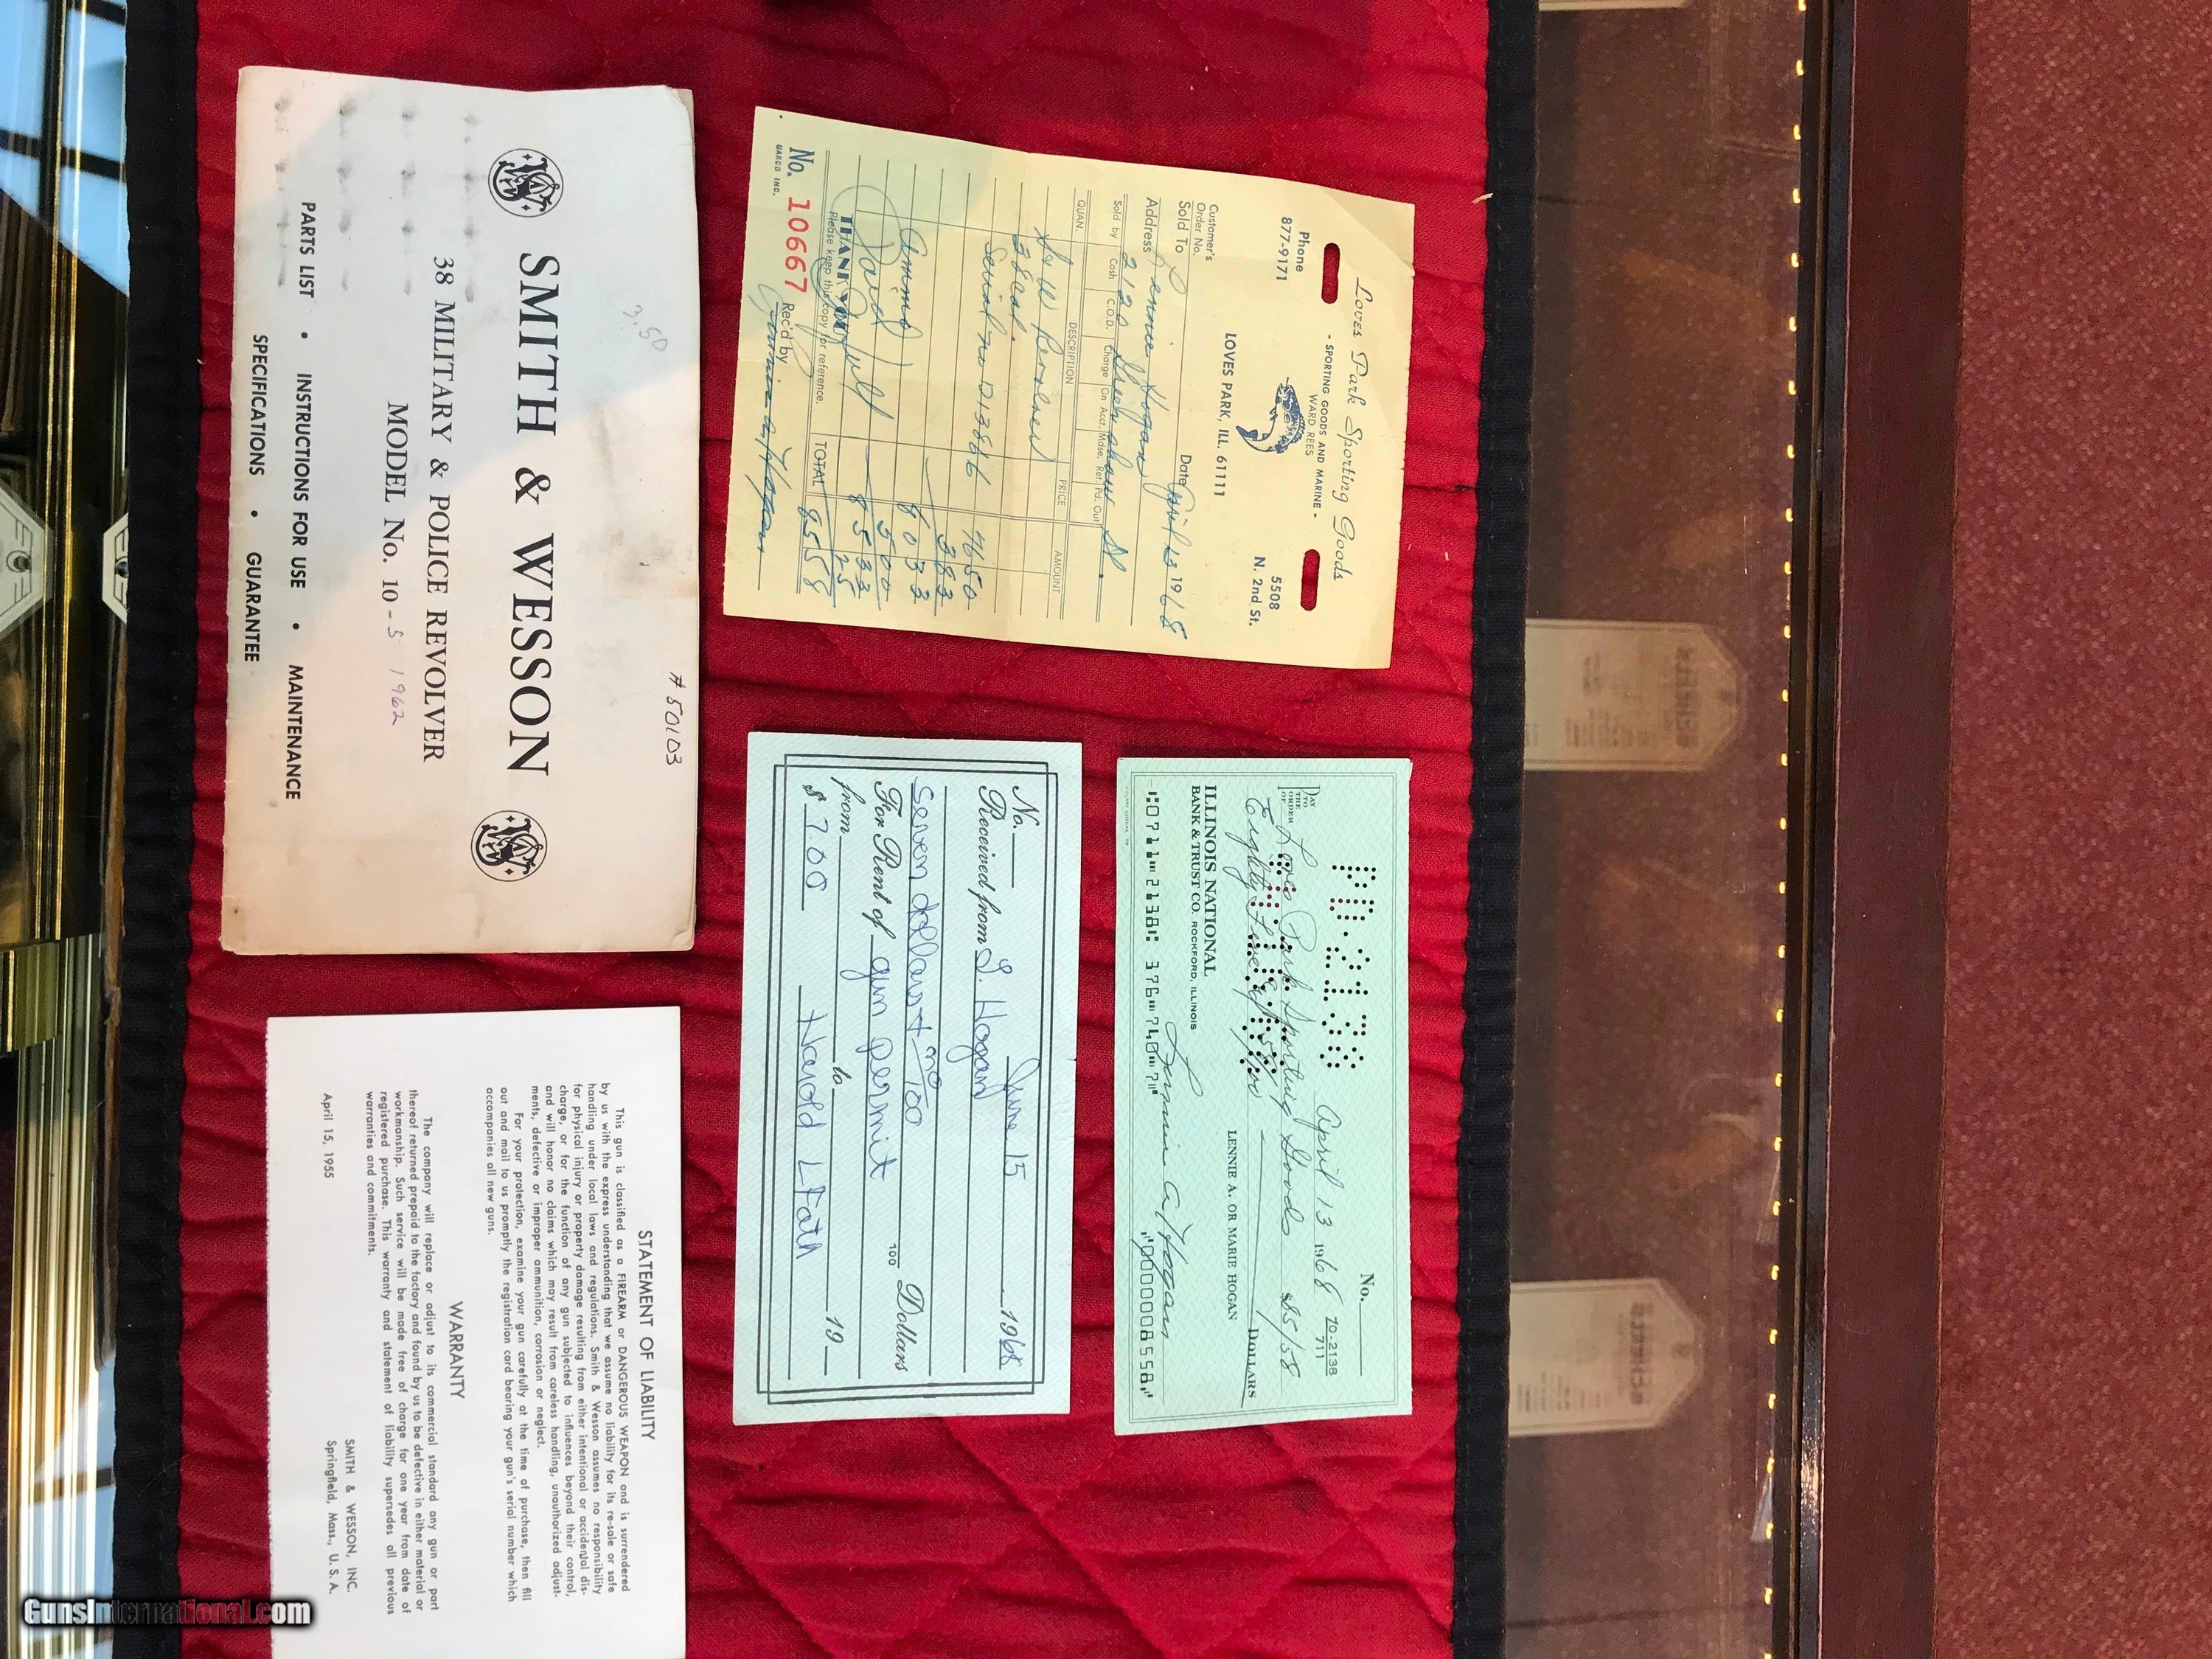 Loves Park Sporting Goods
- SPORTING GOODS AND MARINE -
WARD REES
Phone
877-9171
5508
N. 2nd St.
LOVES PARK, ILL. 61111
Customer's
Order No.
Date April 13 1968
Sold To Lennie Hogan
Address 2120 St.
Sold by Cash C.O.D. Charge On Acct. Mdse. Ret. Pd. Out
QUAN. DESCRIPTION PRICE AMOUNT
S & W Revolver
38 cal. 76 50
Serial no D13886 3 83
80 33
Ammo 5 00
Paid 85 33
25
THANK YOU
TOTAL 85 58
Please keep this copy for reference.
No. 10667 Rec'd by
UARCO INC.
No.
PD.2138
April 13 1968 70-2138
711
PAY
TO
THE
ORDER
OF
Loves Park Sporting Goods $85/58
Eighty Five & 58/100 DOLLARS
LENNIE A. OR MARIE HOGAN
ILLINOIS NATIONAL
BANK & TRUST CO. ROCKFORD, ILLINOIS
Lennie A Hogan
0711 2138 376 740 7 0000008558
No. June 15 1968
Received from L. Hogan
seven dollars + no/100 100 Dollars
For Rent of gun permit
from to 19
$ 7.00 Harold L Fath
3.50
#50103
SMITH & WESSON
38 MILITARY & POLICE REVOLVER
MODEL No. 10-5 1962
PARTS LIST • INSTRUCTIONS FOR USE • MAINTENANCE
SPECIFICATIONS • GUARANTEE
STATEMENT OF LIABILITY
This gun is classified as a FIREARM or DANGEROUS WEAPON and is surrendered
by us with the express understanding that we assume no liability for its re-sale or safe
handling under local laws and regulations. Smith & Wesson assumes no responsibility
for physical injury or property damage resulting from either intentional or accidental dis-
charge, or for the function of any gun subjected to influences beyond their control,
and will honor no claims which may result from careless handling, unauthorized adjust-
ments, defective or improper ammunition, corrosion or neglect.
For your protection, examine your gun carefully at the time of purchase, then fill
out and mail to us promptly the registration card bearing your gun's serial number which
accompanies all new guns.
WARRANTY
The company will replace or adjust to its commercial standard any gun or part
thereof returned prepaid to the factory and found by us to be defective in either material or
workmanship. Such service will be made free of charge for one year from date of
registered purchase. This warranty and statement of liability supersedes all previous
warranties and commitments.
SMITH & WESSON, INC.
April 15, 1955 Springfield, Mass., U. S. A.
GunsInternational.com